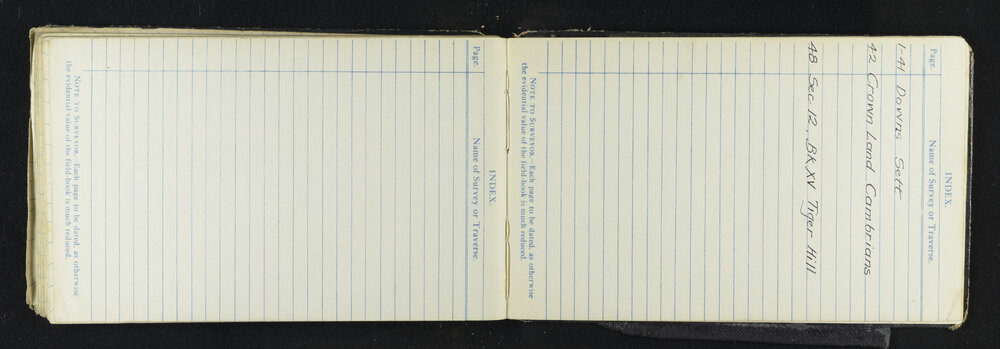 INDEX.
Page. Name of Survey or Traverse.
1-41 Downs Sett
42 Crown Land Cambrians
48 Sec 12, Bk XV Tiger Hill
NOTE TO SURVEYOR.—Each page to be dated, as otherwise
the evidential value of the field-book is much reduced.
INDEX.
Page. Name of Survey or Traverse.
NOTE TO SURVEYOR.—Each page to be dated, as otherwise
the evidential value of the field-book is much reduced.